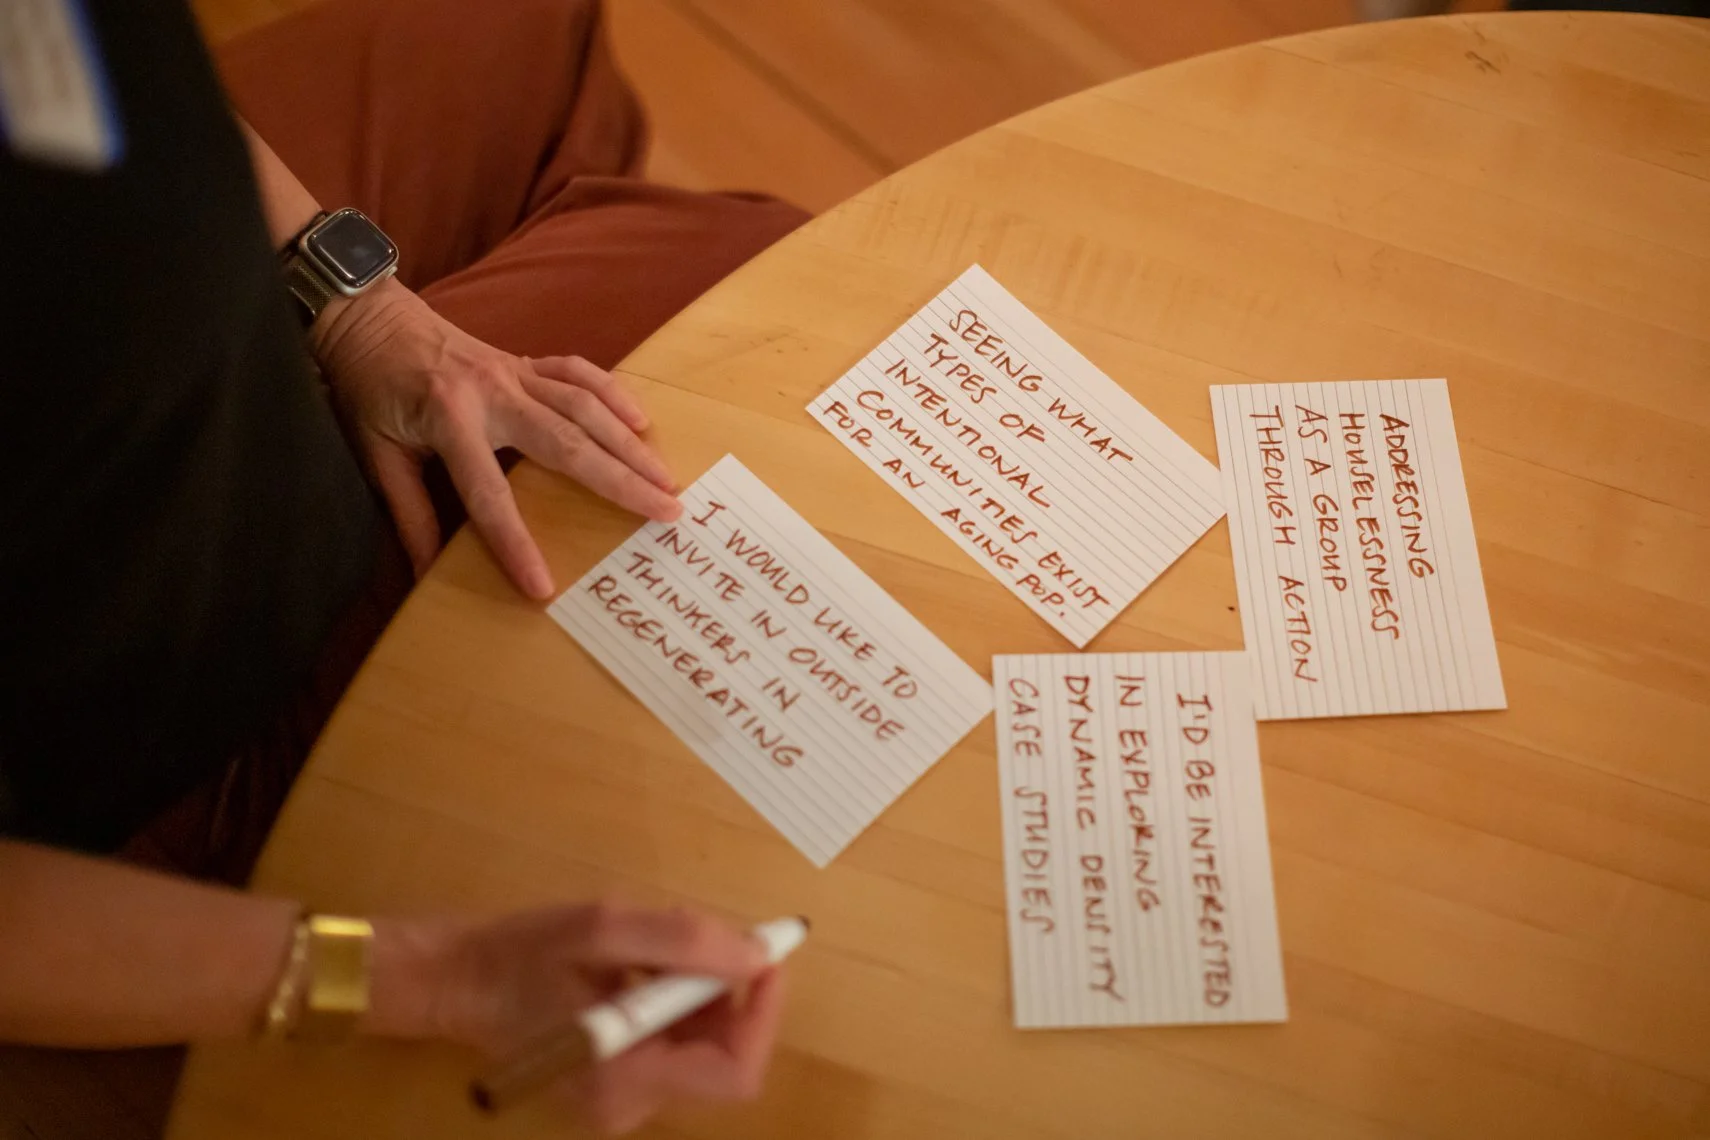 SEEING WHAT
TYPES OF
INTENTIONAL
COMMUNITIES EXIST
FOR AN AGING POP.
ADDRESSING
HOUSELESSNESS
AS A GROUP
THROUGH ACTION
I WOULD LIKE TO
INVITE IN OUTSIDE
THINKERS IN
REGENERATING
I'D BE INTERESTED
IN EXPLORING
DYNAMIC DENSITY
CASE STUDIES